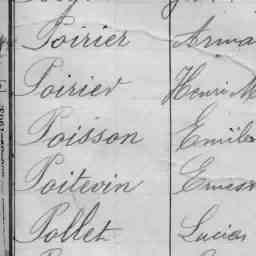 Poirier
Poirier Henri M
Poisson Emile
Poitevin Ernes
Pollet Lucien